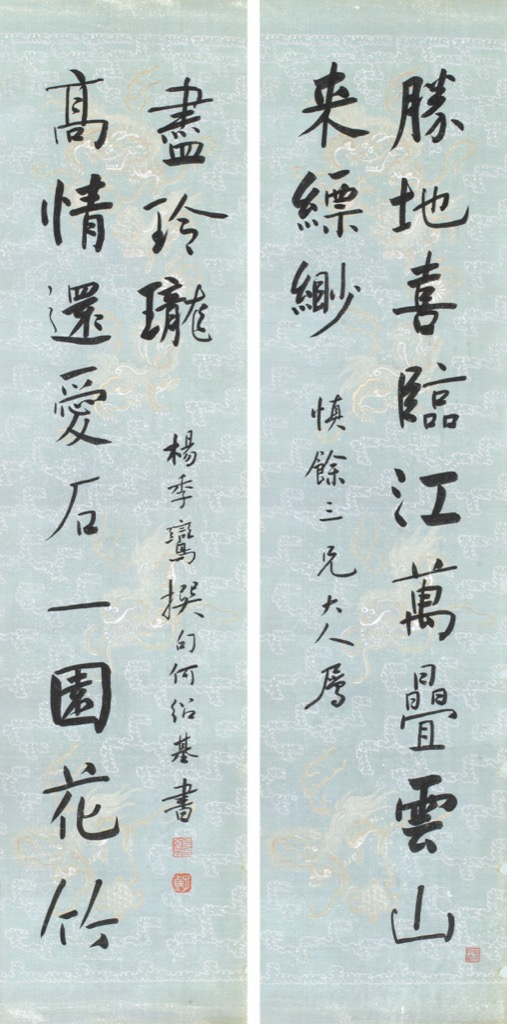 勝地喜臨江萬疊雲山
来縹緲
慎餘三兄大人属
高情還愛石一園花竹
盡玲瓏
楊季鸞撰句何紹基書